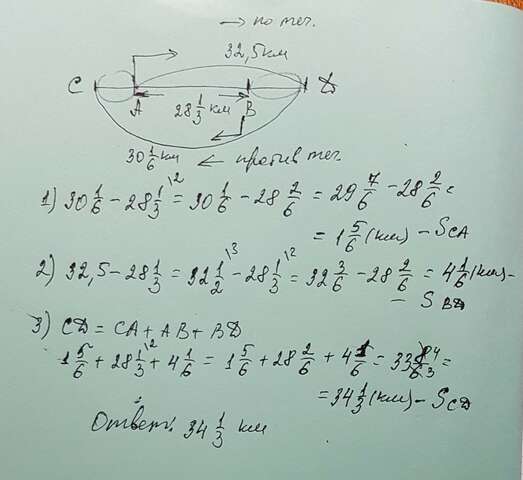 → по теч.
32,5 км
C A B D
28 1/3 км
30 1/6 км ← против теч.
1) 30 1/6 - 28 1/3 \2 = 30 1/6 - 28 2/6 = 29 7/6 - 28 2/6 =
= 1 5/6 (км) - S CA
2) 32,5 - 28 1/3 = 32 1/2 \3 - 28 1/3 \2 = 32 3/6 - 28 2/6 = 4 1/6 (км) -
- S BD
3) CD = CA + AB + BD
1 5/6 + 28 1/3 \2 + 4 1/6 = 1 5/6 + 28 2/6 + 4 1/6 = 33 8/6 4/3 =
= 34 1/3 (км) - S CD
Ответ: 34 1/3 км